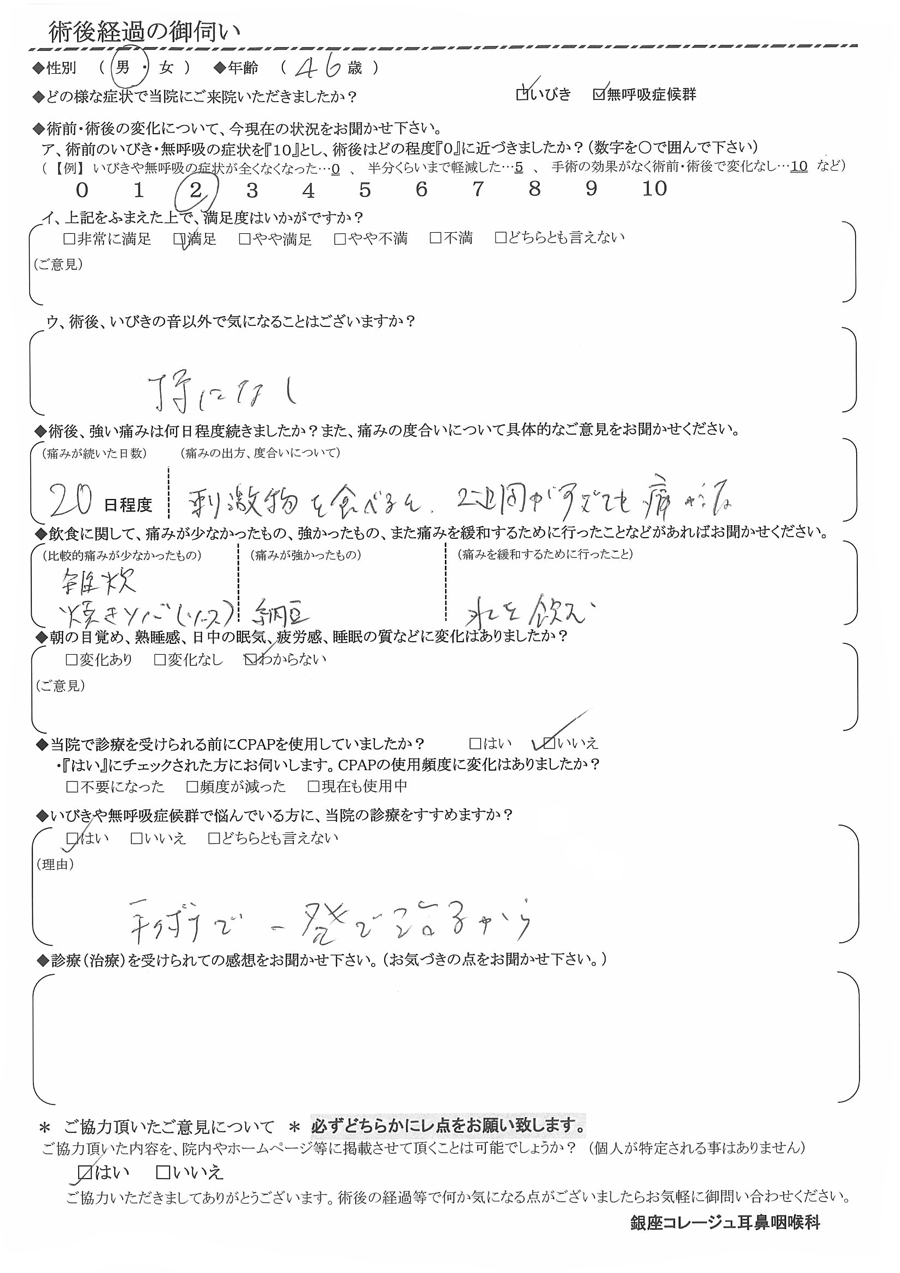 術後経過の御伺い
◆性別 ( 男 ・ 女 ) ◆年齢 ( 46 歳 )
◆どの様な症状で当院にご来院いただきましたか? ☑いびき ☑無呼吸症候群
◆術前・術後の変化について、今現在の状況をお聞かせ下さい。
ア、術前のいびき・無呼吸の症状を『10』とし、術後はどの程度『0』に近づきましたか?(数字を〇で囲んで下さい)
(【例】いびきや無呼吸の症状が全くなくなった…0 、 半分くらいまで軽減した…5 、 手術の効果がなく術前・術後で変化なし…10 など)
0 1 2 3 4 5 6 7 8 9 10
イ、上記をふまえた上で、満足度はいかがですか?
□非常に満足 ☑満足 □やや満足 □やや不満 □不満 □どちらとも言えない
(ご意見)
ウ、術後、いびきの音以外で気になることはございますか?
特になし
◆術後、強い痛みは何日程度続きましたか?また、痛みの度合いについて具体的なご意見をお聞かせください。
(痛みが続いた日数) (痛みの出方、度合いについて)
20 日程度 刺激物を食べると、2週間がすぎても痛
◆飲食に関して、痛みが少なかったもの、強かったもの、また痛みを緩和するために行ったことなどがあればお聞かせください。
(比較的痛みが少なかったもの) (痛みが強かったもの) (痛みを緩和するために行ったこと)
雑炊
焼きソバ(ソース) 納豆 水を飲む
◆朝の目覚め、熟睡感、日中の眠気、疲労感、睡眠の質などに変化はありましたか?
□変化あり □変化なし ☑わからない
(ご意見)
◆当院で診療を受けられる前にCPAPを使用していましたか? □はい ☑いいえ
・『はい』にチェックされた方にお伺いします。CPAPの使用頻度に変化はありましたか?
□不要になった □頻度が減った □現在も使用中
◆いびきや無呼吸症候群で悩んでいる方に、当院の診療をすすめますか?
☑はい □いいえ □どちらとも言えない
(理由)
で一発で治るから
◆診療(治療)を受けられての感想をお聞かせ下さい。(お気づきの点をお聞かせ下さい。)
＊ ご協力頂いたご意見について ＊ 必ずどちらかにレ点をお願い致します。
ご協力頂いた内容を、院内やホームページ等に掲載させて頂くことは可能でしょうか? (個人が特定される事はありません)
☑はい □いいえ
ご協力いただきましてありがとうございます。術後の経過等で何か気になる点がございましたらお気軽に御問い合わせください。
銀座コレージュ耳鼻咽喉科